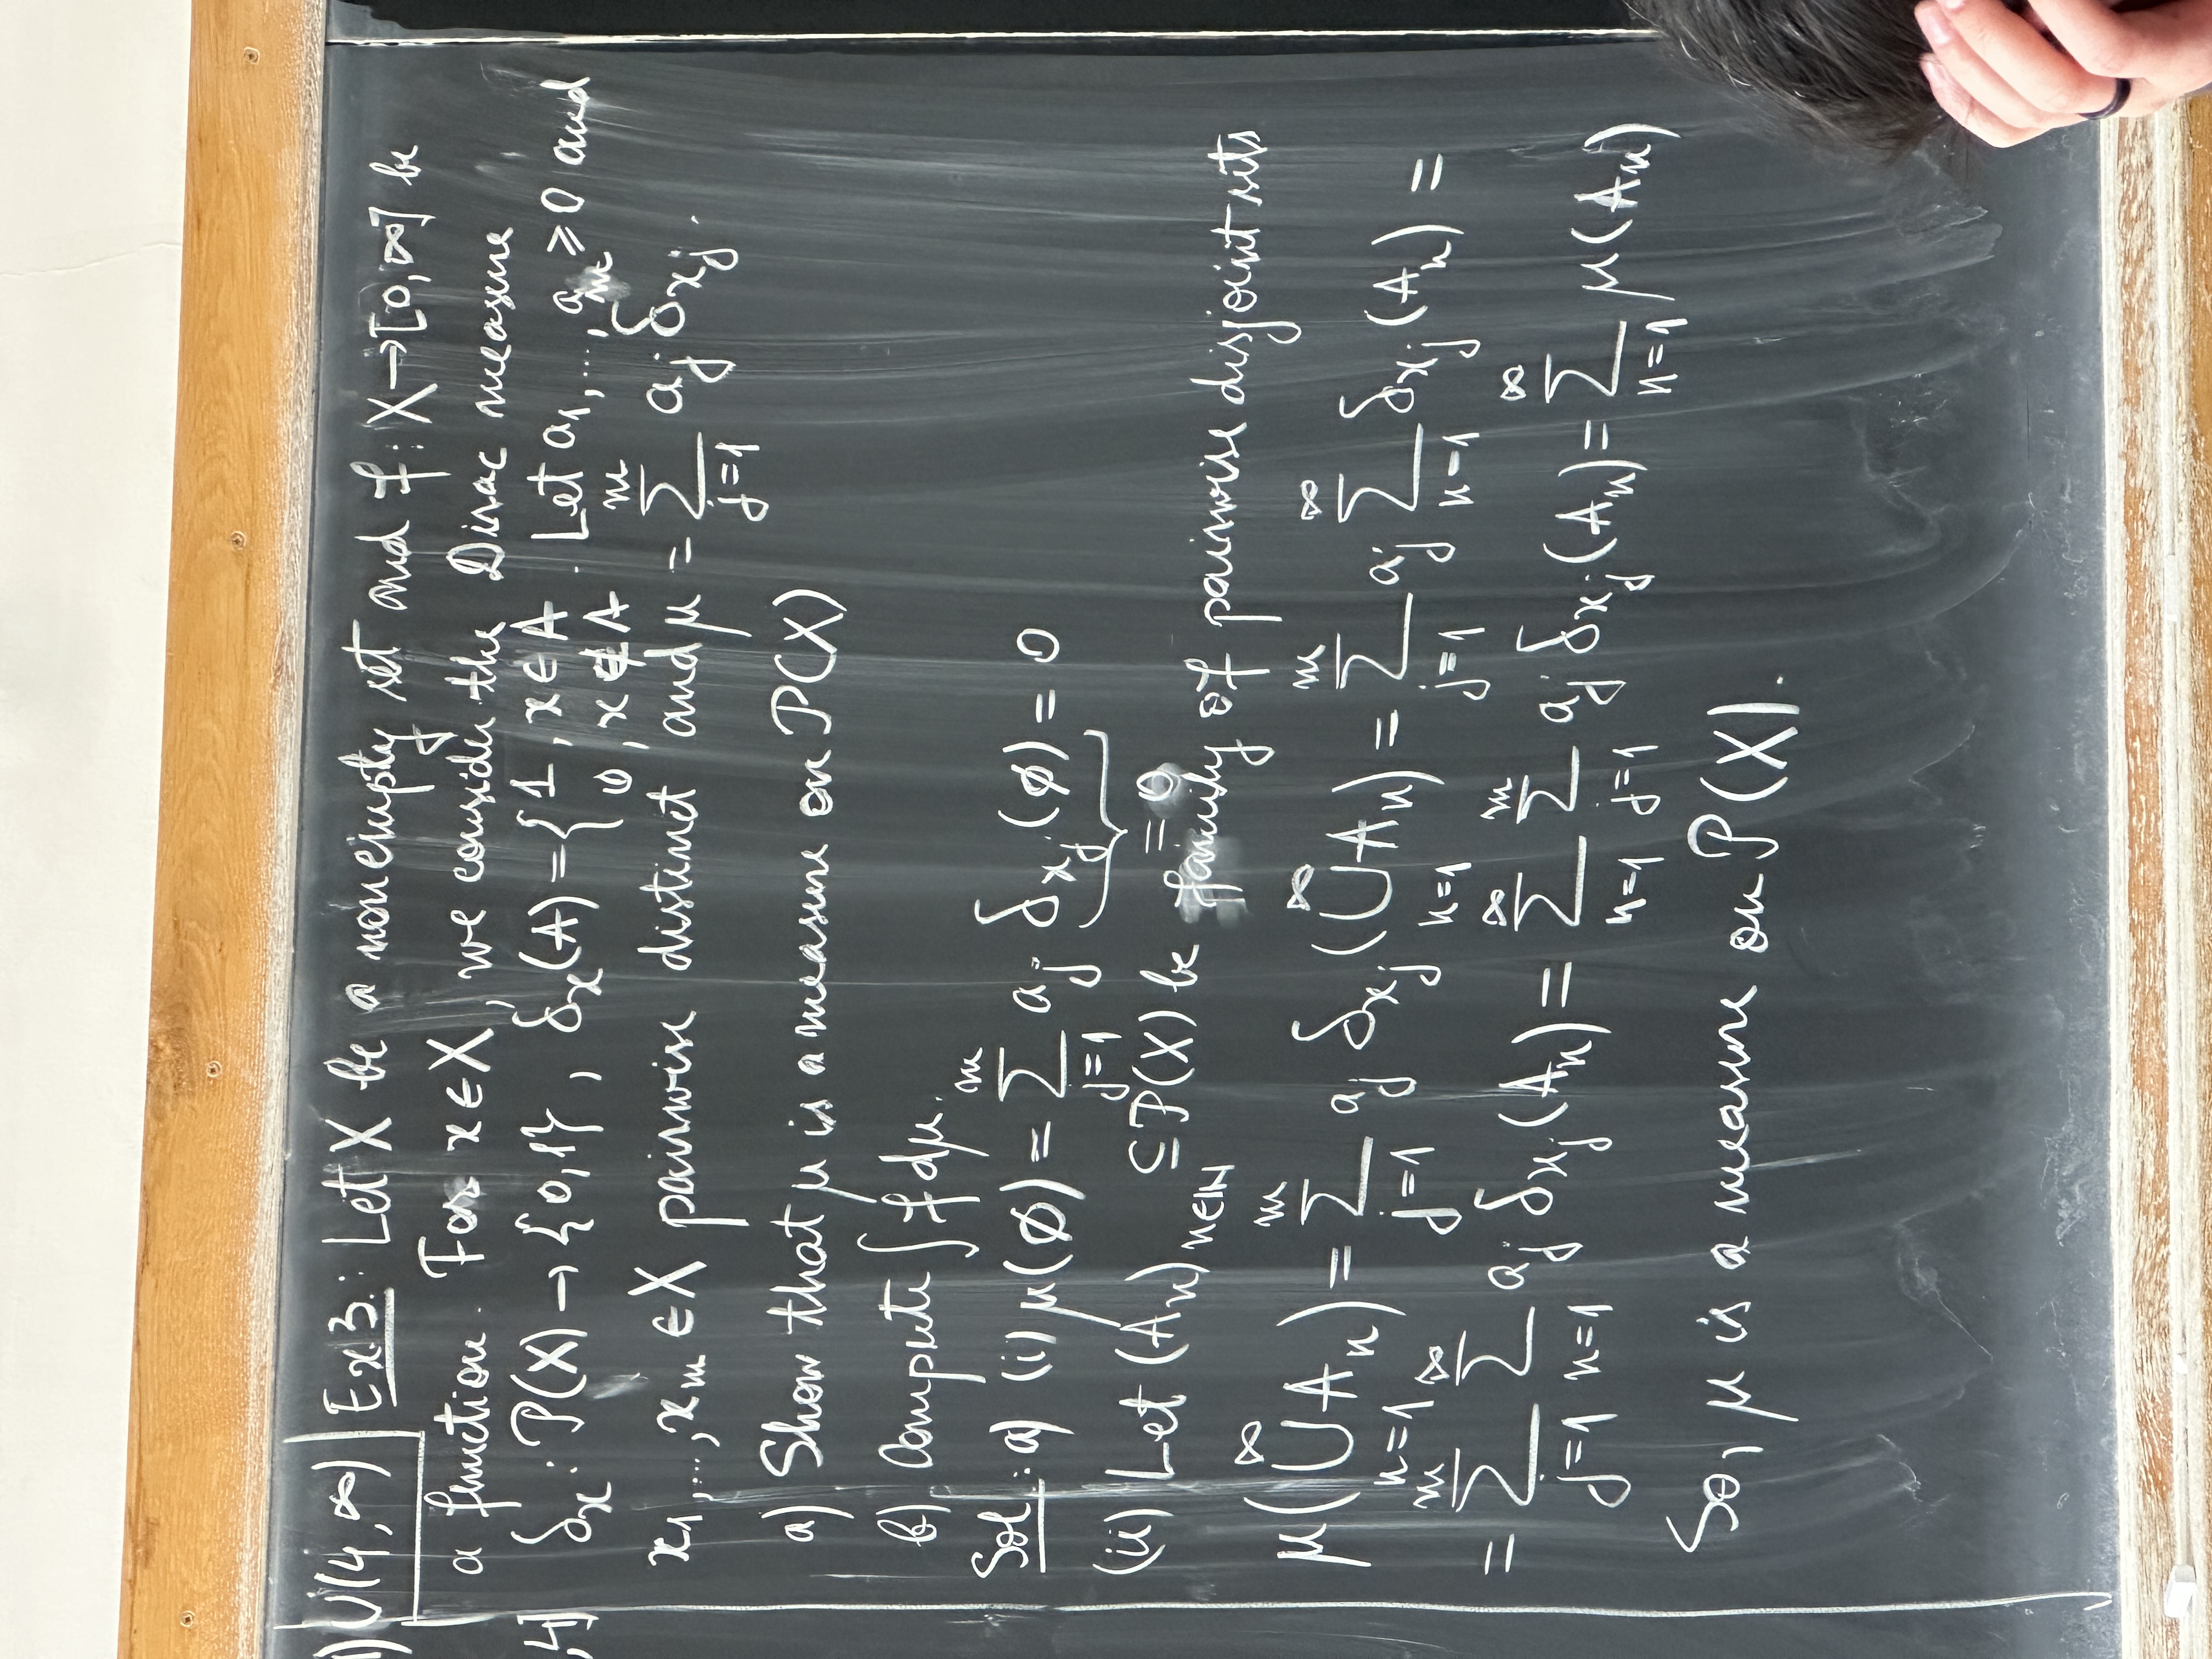 1) ∪(4,∞) Ex.3.: Let X be a nonempty set and f: X→[0,∞] be
a function. For x∈X, we consider the Dirac measure
,4] δ_x : P(X) → {0,1}, δ_x(A) = { 1, x∈A ; 0, x∉A . Let a_1,...,a_m ≥ 0 and
x_1,...,x_m ∈ X pairwise distinct and μ = ∑_{j=1}^{m} a_j δ_{x_j}.
a) Show that μ is a measure on P(X)
b) Compute ∫ f dμ.
Sol.: a) (i) μ(∅) = ∑_{j=1}^{m} a_j δ_{x_j}(∅) = 0
= 0
(ii) Let (A_n)_{n∈ℕ} ⊆ P(X) be family of pairwise disjoint sets
μ(⋃_{n=1}^{∞} A_n) = ∑_{j=1}^{m} a_j δ_{x_j}(⋃_{n=1}^{∞} A_n) = ∑_{j=1}^{m} a_j ∑_{n=1}^{∞} δ_{x_j}(A_n) =
= ∑_{j=1}^{m} ∑_{n=1}^{∞} a_j δ_{x_j}(A_n) = ∑_{n=1}^{∞} ∑_{j=1}^{m} a_j δ_{x_j}(A_n) = ∑_{n=1}^{∞} μ(A_n)
So, μ is a measure on P(X).